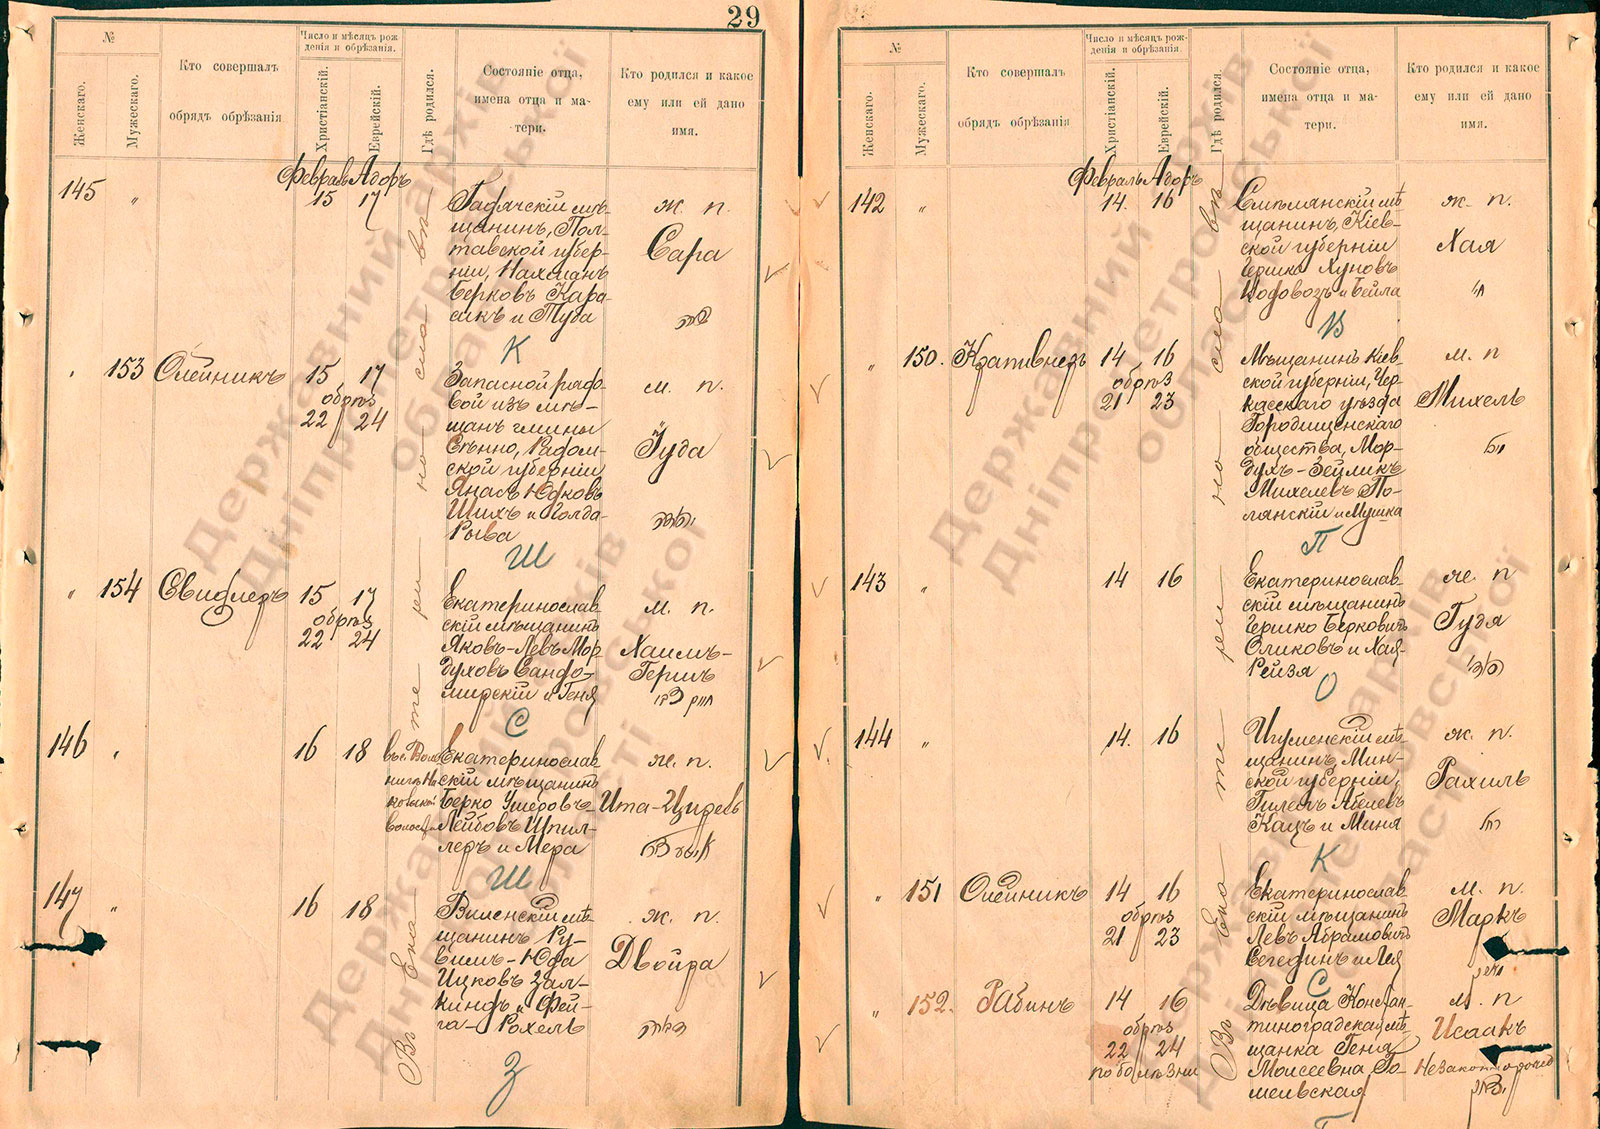 29
№
Женскаго.
Мужескаго.
Кто совершалъ
обрядъ обрѣзанія
Число и мѣсяцъ рож
денія и обрѣзанія.
Христіанскій.
Еврейскій.
Гдѣ родился.
Состояніе отца,
имена отца и ма-
тери.
Кто родился и какое
ему или ей дано
имя.
Февраль Адоръ
145 " 15 17
Гадячскій мѣ-
щанинъ, Пол-
тавской губер-
ніи, Нахманъ
Берковъ Кара-
сикъ и Туба
ж. п.
Сара
К
" 153 Олейникъ 15 17
обрѣз
22 24
Запасной рядо-
вой изъ мѣ-
щанъ гмины
Сѣнно, Радом-
ской губерніи
Шихъ и Голда-
Рыва
м. п.
Іуда
Ш
" 154 15 17
обрѣз
22 24
Екатеринослав
скій мѣщанинъ
Яковъ-Левъ Мор
духовъ Сандо-
мирскій и Геня
м. п.
Хаимъ-
Гершъ
С
146 " 16 18
Екатеринослав
скій мѣщанинъ
Берко Ушеровъ-
Лейбовъ Шпил-
леръ и Мера
ж. п.
Ита-Цирель
Ш
147 " 16 18
Виленскій мѣ-
щанинъ Ру-
вимъ-Юда
Ицковъ Зал-
киндъ и Фей-
га-Рохель
ж. п.
Двойра
З
Въ Ека те ри но сла вѣ
№
Женскаго.
Мужескаго.
Кто совершалъ
обрядъ обрѣзанія
Число и мѣсяцъ рож-
денія и обрѣзанія.
Христіанскій.
Еврейскій.
Гдѣ родился.
Состояніе отца,
имена отца и ма-
тери.
Кто родился и какое
ему или ей дано
имя.
Февраль Адоръ
142 " 14. 16
Смѣлянскій мѣ
щанинъ, Кіев-
ской губерніи
Гершко Хуновъ
Водовозъ и Бейла
ж. п.
Хая
В
" 150. Крапивнеръ 14 16
обрѣз
21 23
Мѣщанинъ Кіев-
ской губерніи, Чер-
касскаго уѣзда
Городищенскаго
общества, Мор-
духъ-Зейликъ
Михелевъ По-
лянскій и Мушка
м. п
Михель
П
143 " 14 16
Екатеринослав-
скій мѣщанинъ
Гершко Берковичъ
Оликовъ и Хая-
Рейзя
ж. п
Гудя
О
144 " 14. 16
Игуменскій мѣ-
щанинъ, Мин-
ской губерніи,
Абелевъ
Кацъ и Миня
ж. п.
Рахиль
К
" 151 Олейникъ 14 16
обрѣз
21 23
Екатеринослав-
скій мѣщанинъ
Левъ Абрамовичъ
Сегединъ и Лея
м. п.
Маркъ
С
" 152. Рабинъ 14 16
обрѣз
22 24
по болѣзни
Дѣвица Констан-
тиноградская мѣ-
щанка Геня
Моисеевна Го-
мельская
м. п
Исаакъ
незаконнорожд
Въ Ека те ри но сла вѣ
Державний архів
Дніпропетровської
області